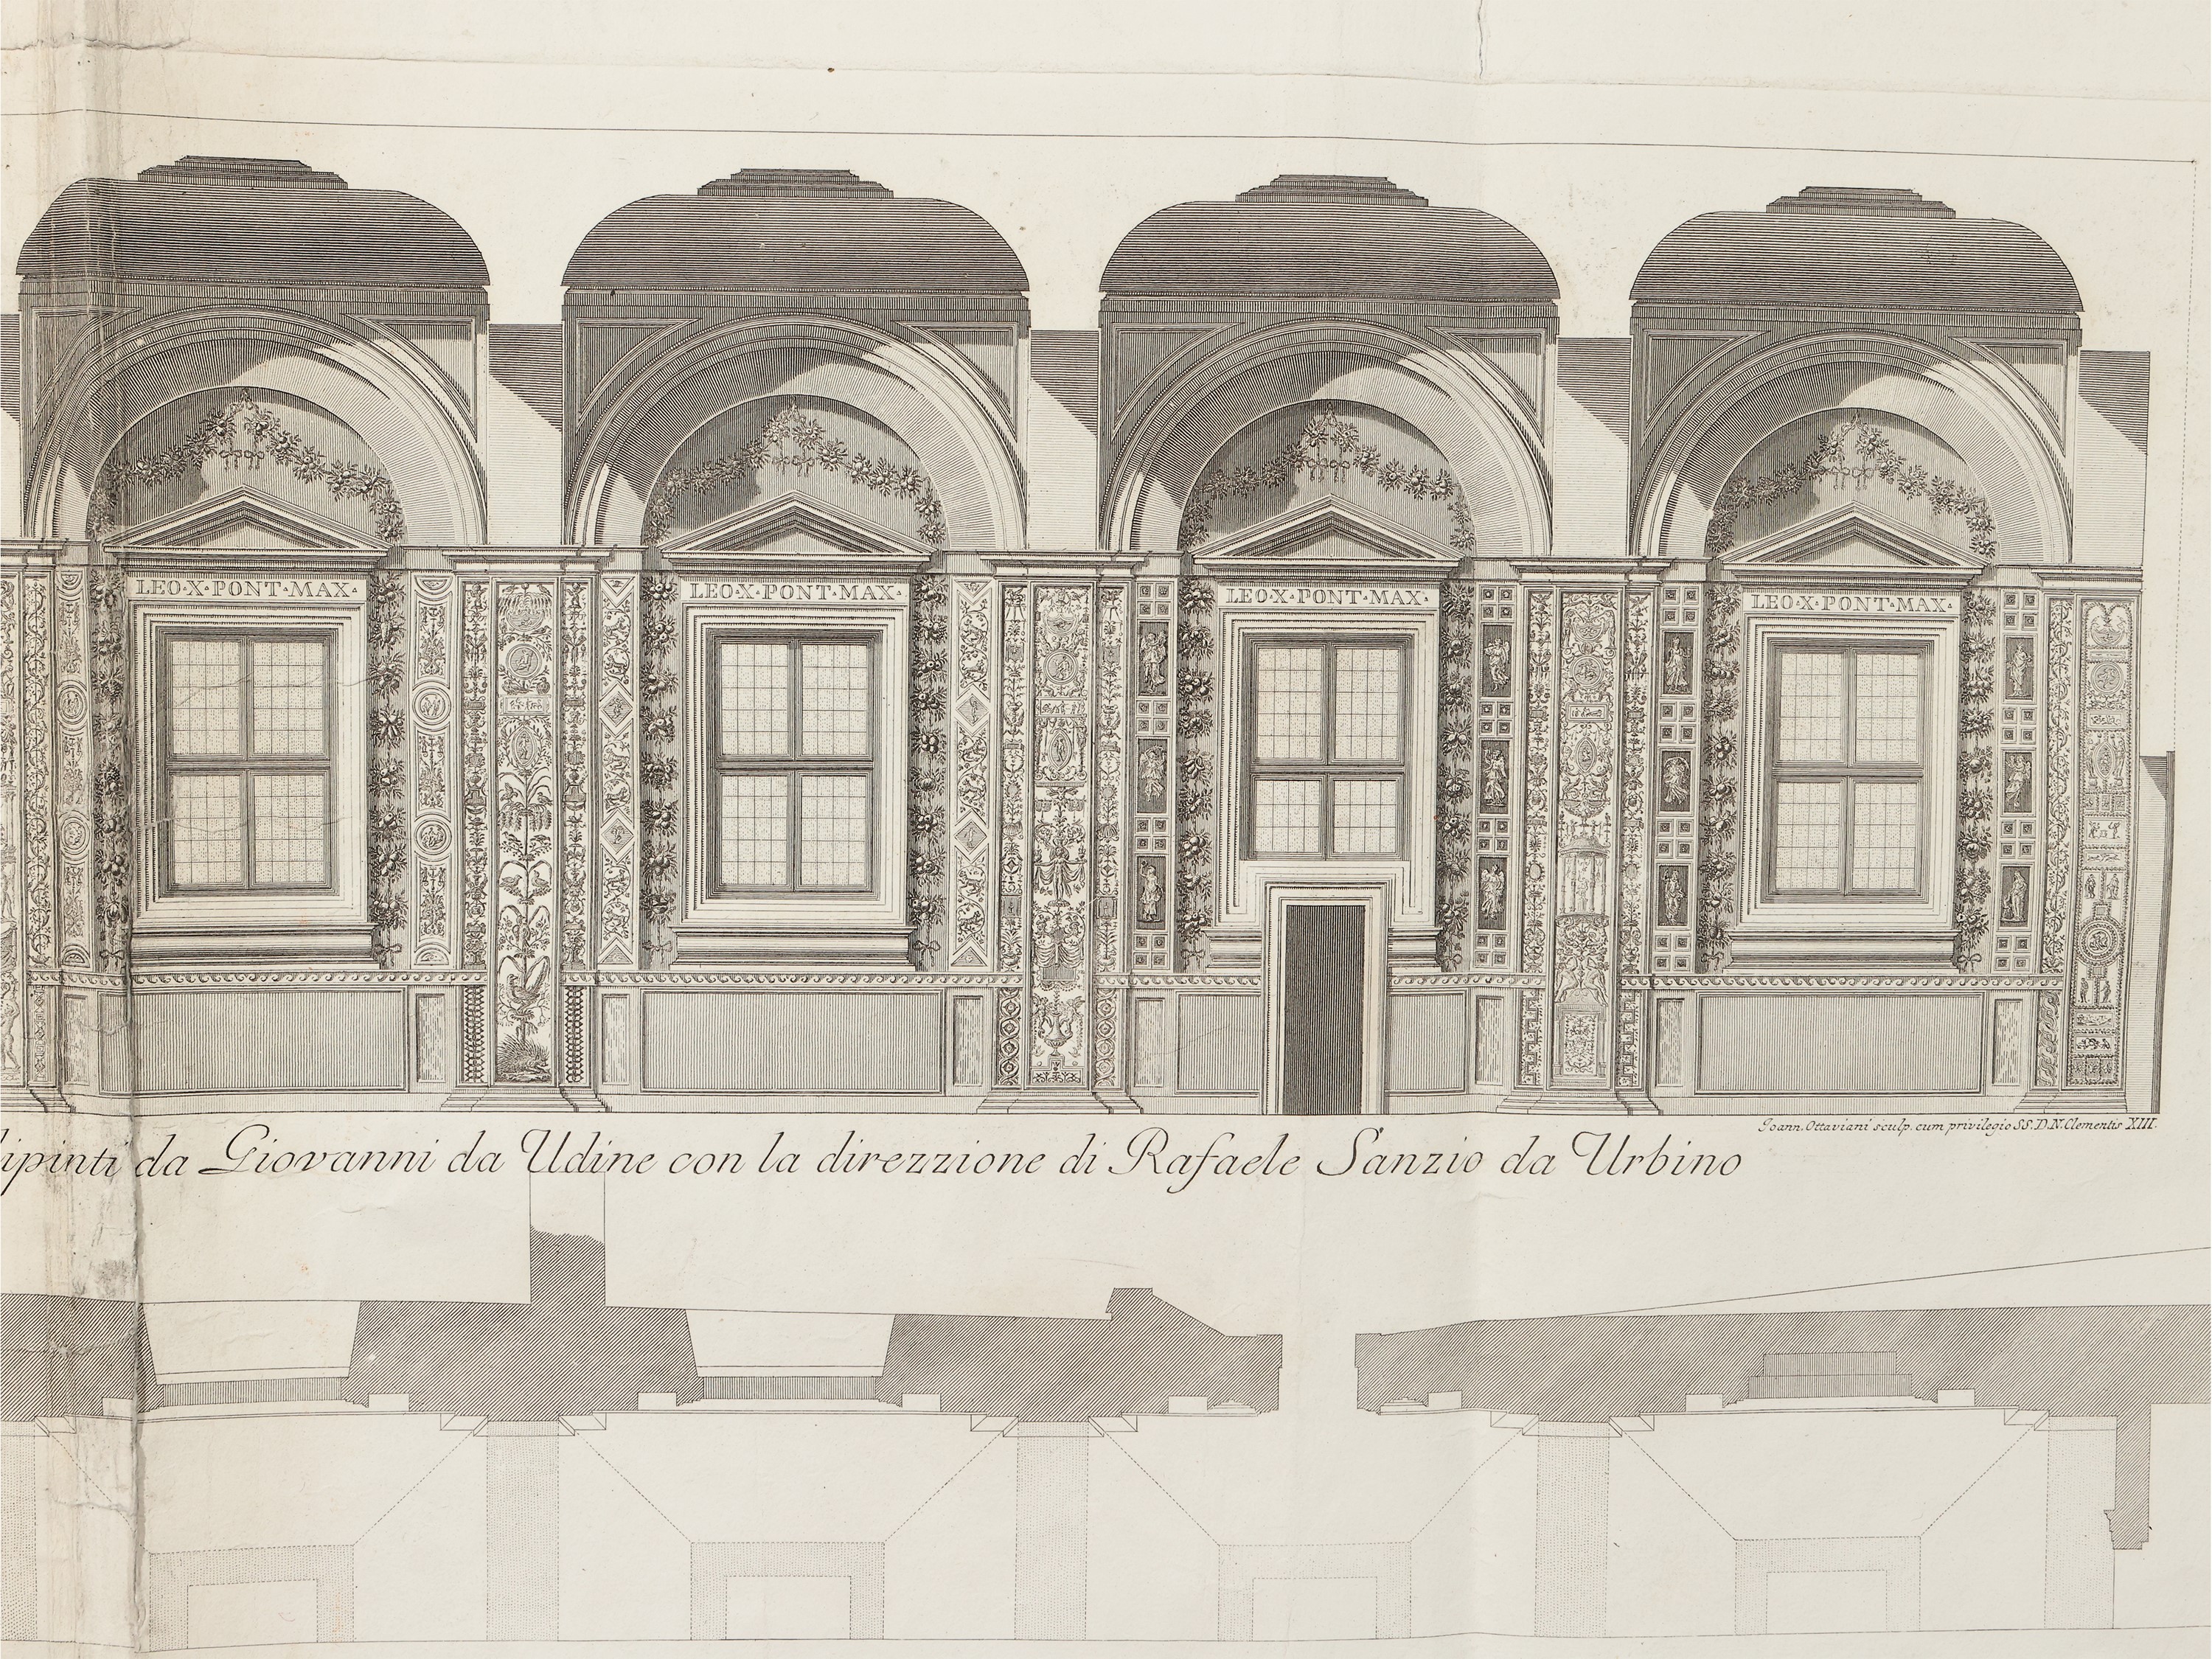 LEO·X·PONT·MAX·
LEO·X·PONT·MAX·
LEO·X·PONT·MAX·
LEO·X·PONT·MAX·
Joann. Ottaviani sculp. cum privilegio SS. D. N. Clementis XIII.
ipinti da Giovanni da Udine con la direzzione di Rafaele Sanzio da Urbino